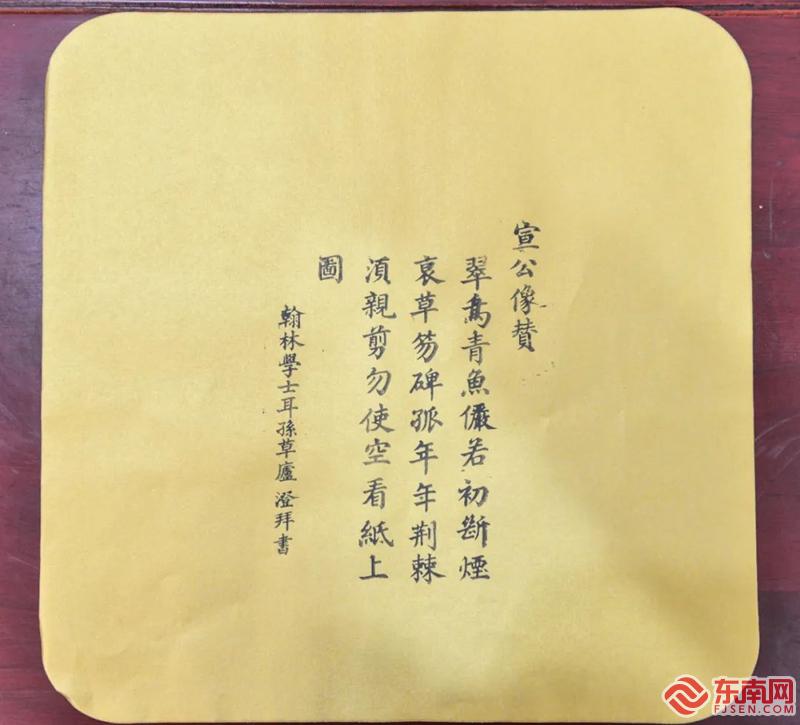 宣公像賛
翠舄青魚儼若初斷煙
哀草笏碑孤年年荆棘
湏親剪勿使空看紙上
圖
翰林學士耳孫草廬澄拜書
东南网
FJSEN.COM